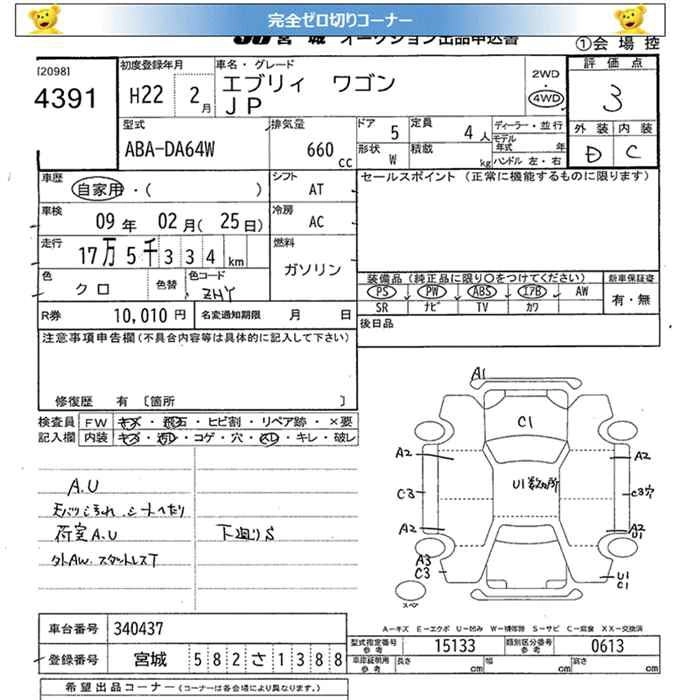 完全ゼロ切りコーナー
JU 宮城 オークション出品申込書
①会場控
[2098]
4391
初度登録年月
H22 2月
車名・グレード
エブリィ ワゴン
JP
2WD
・
4WD
評価点
3
外装 内装
D C
型式
ABA-DA64W
排気量
660 cc
ドア 5
定員 4人
形状 W
積載 kg
ディーラー・並行
モデル年式 年
ハンドル 左・右
車歴
自家用・( )
シフト
AT
セールスポイント (正常に機能するものに限ります)
車検
09年 02月( 25日)
冷房
AC
走行
17万5千334km
燃料
ガソリン
色
クロ
色替
色コード
ZMY
装備品(純正品に限り○をつけてください)
PS PW ABS エアB AW
SR ナビ TV カワ
新車保証書
有・無
R券 10,010円
名変通知期限 月 日
後日品
注意事項申告欄(不具合内容等は具体的に記入して下さい)
修復歴 有 〔箇所 〕
検査員記入欄
FW キズ・飛石・ヒビ割・リペア跡・×要
内装 キズ・汚れ・コゲ・穴・スレ・キレ・破レ
A.U
シートへたり
荷室A.U
下廻りS
外AW. スタットレスT
A1
C1
U1数カ所
A2
A2
C3
C3穴
A2
A2
U1
A3
C3
U1
C1
スペア
A－キズ E－エクボ U－凹み W－補修跡 S－サビ C－腐食 XX－交換済
車台番号 340437
登録番号 宮城 582さ1388
型式指定番号 参考 15133
類別区分番号 参考 0613
車庫証明用 参考 長さ cm 幅 cm 高さ cm
希望出品コーナー(コーナーは各会場により異なります。)